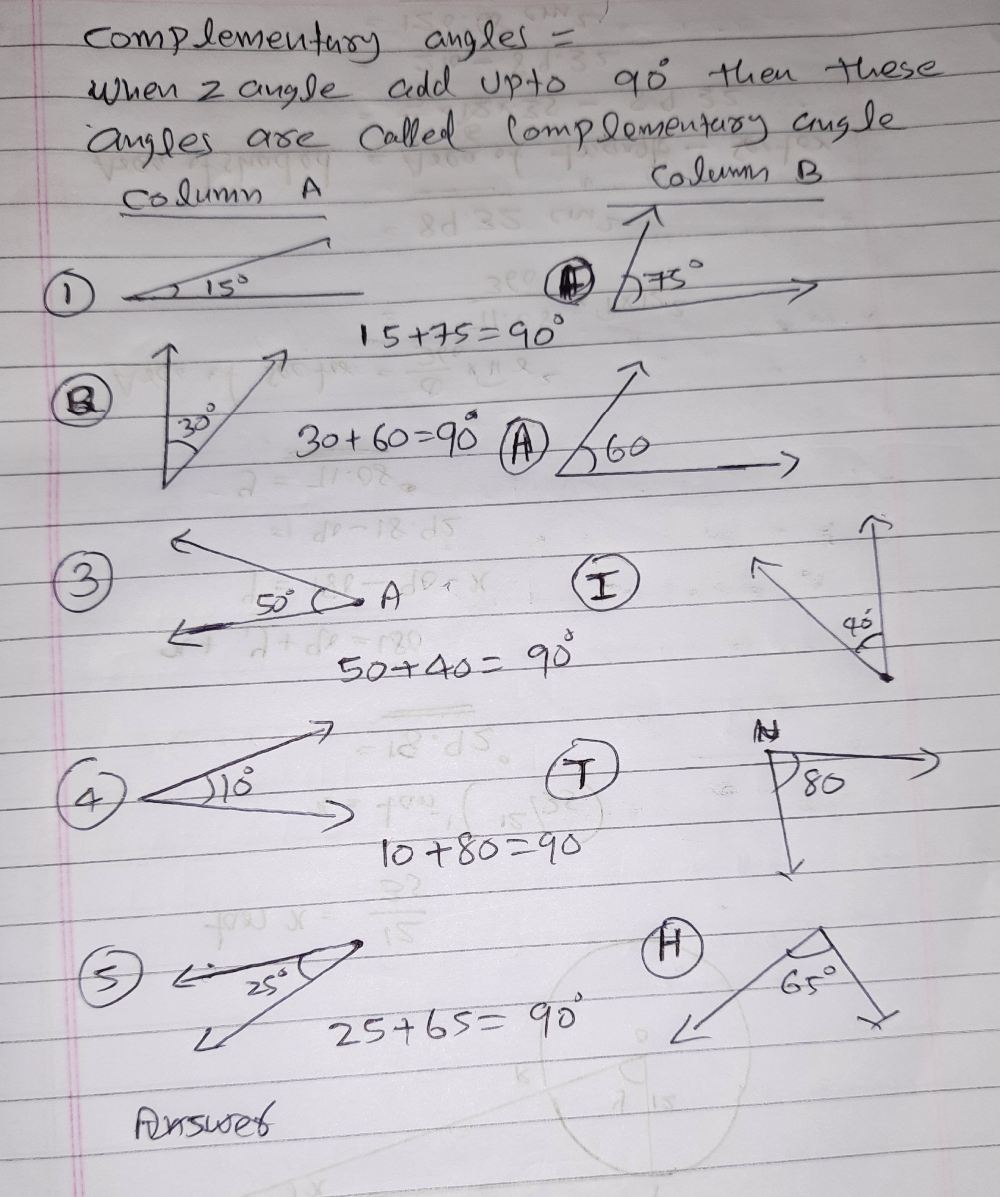 Complementary angles =
When 2 angle add upto 90° then these
angles are Called Complementary angle
Column A Column B
1 15° 75°
15+75=90°
30° 30+60=90° A 60
3 50° A I 40°
50+40= 90°
4 10° T N 80
10+80=90
5 25° H 65°
25+65= 90°
Answer